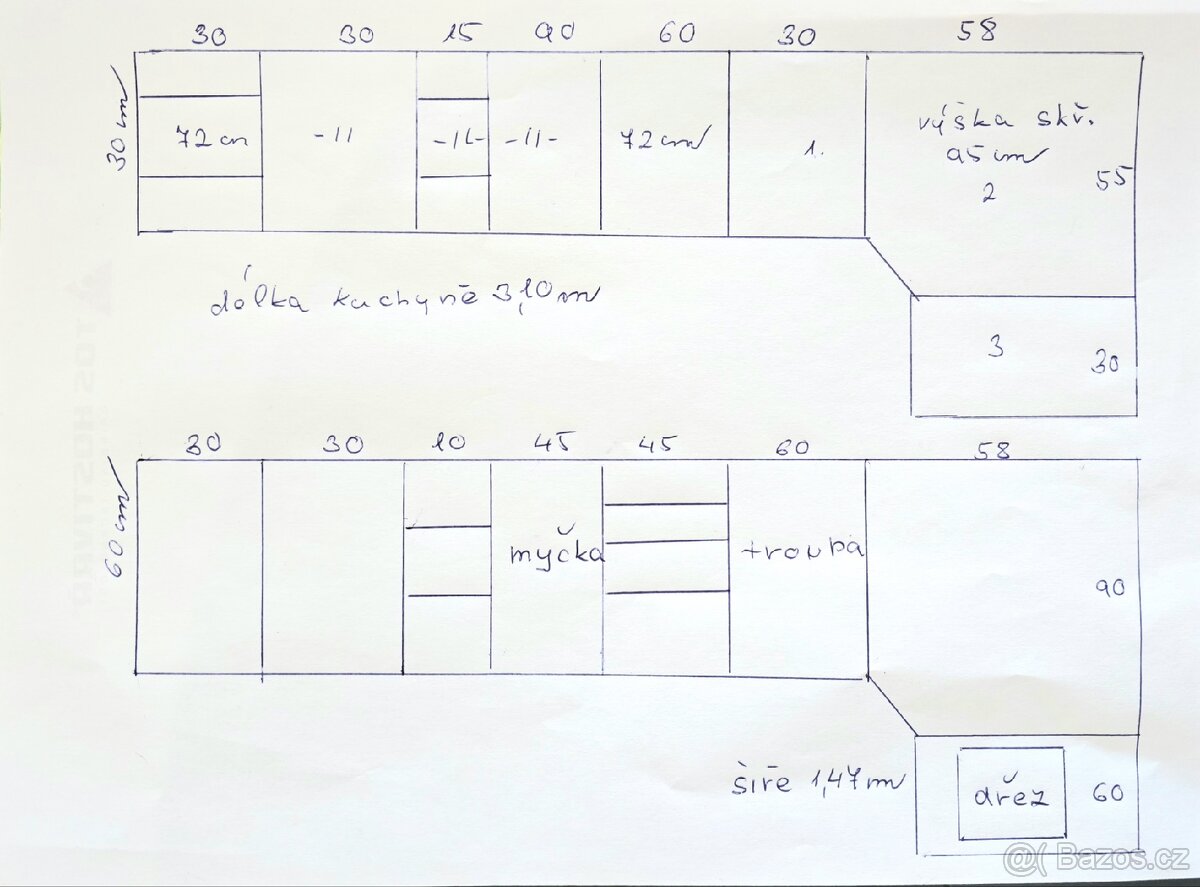 30 30 15 90 60 30 58
30 cm
72 cm -11 -11- -11- 72 cm 1. výška skř.
95 cm
2
55
délka kuchyně 3,10 m
3
30
30 30 10 45 45 60 58
60 cm
myčka trouba
90
šíře 1,47 m
dřez
60
@( Bazos.cz